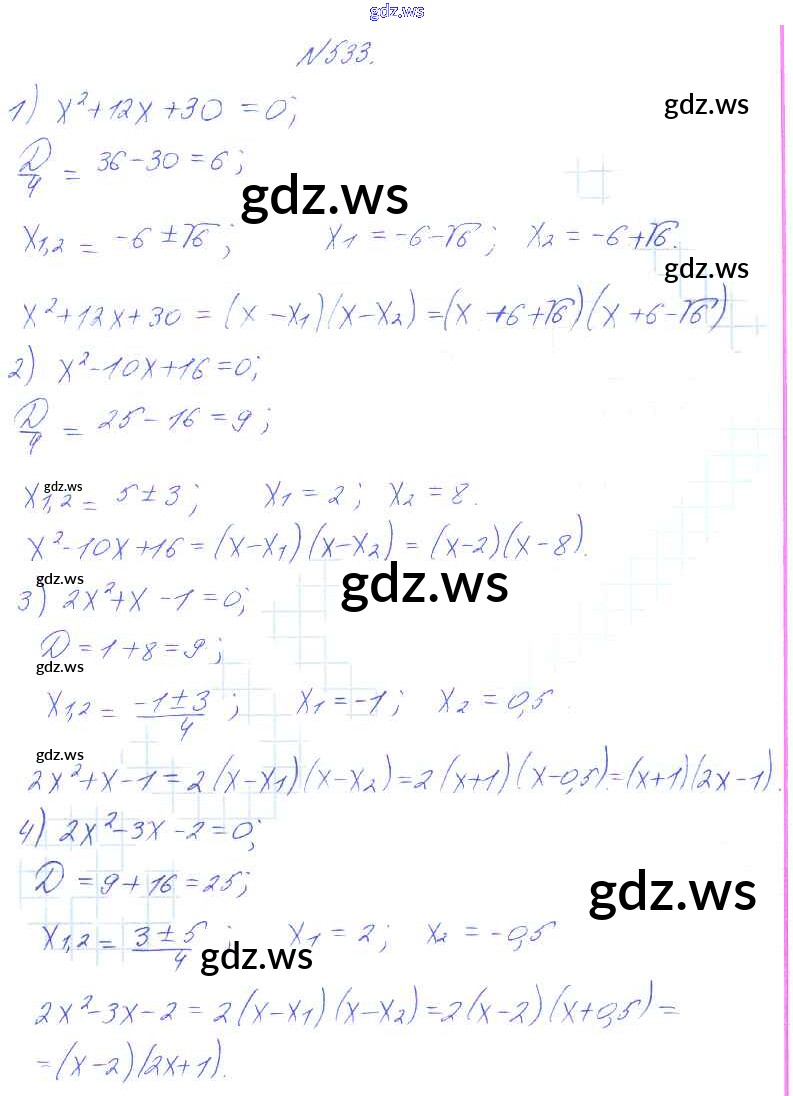 gdz.ws
N533.
1) x²+12x+30 =0; gdz.ws
D/4 = 36-30=6; gdz.ws
x1,2 = -6±√6; x1=-6-√6; x2=-6+√6.
gdz.ws
x²+12x+30 = (x-x1)(x-x2)=(x+6+√6)(x+6-√6)
2) x²-10x+16=0;
D/4 = 25-16=9;
gdz.ws
x1,2 = 5±3; x1=2; x2=8.
x²-10x+16=(x-x1)(x-x2)=(x-2)(x-8).
gdz.ws gdz.ws
3) 2x²+x-1=0;
D=1+8=9;
gdz.ws
x1,2 = (-1±3)/4; x1=-1; x2=0,5.
gdz.ws
2x²+x-1=2(x-x1)(x-x2)=2(x+1)(x-0,5)=(x+1)(2x-1).
4) 2x²-3x-2=0;
D=9+16=25;
gdz.ws
x1,2 = (3±5)/4; x1=2; x2=-0,5
gdz.ws
2x²-3x-2=2(x-x1)(x-x2)=2(x-2)(x+0,5)=
=(x-2)(2x+1).